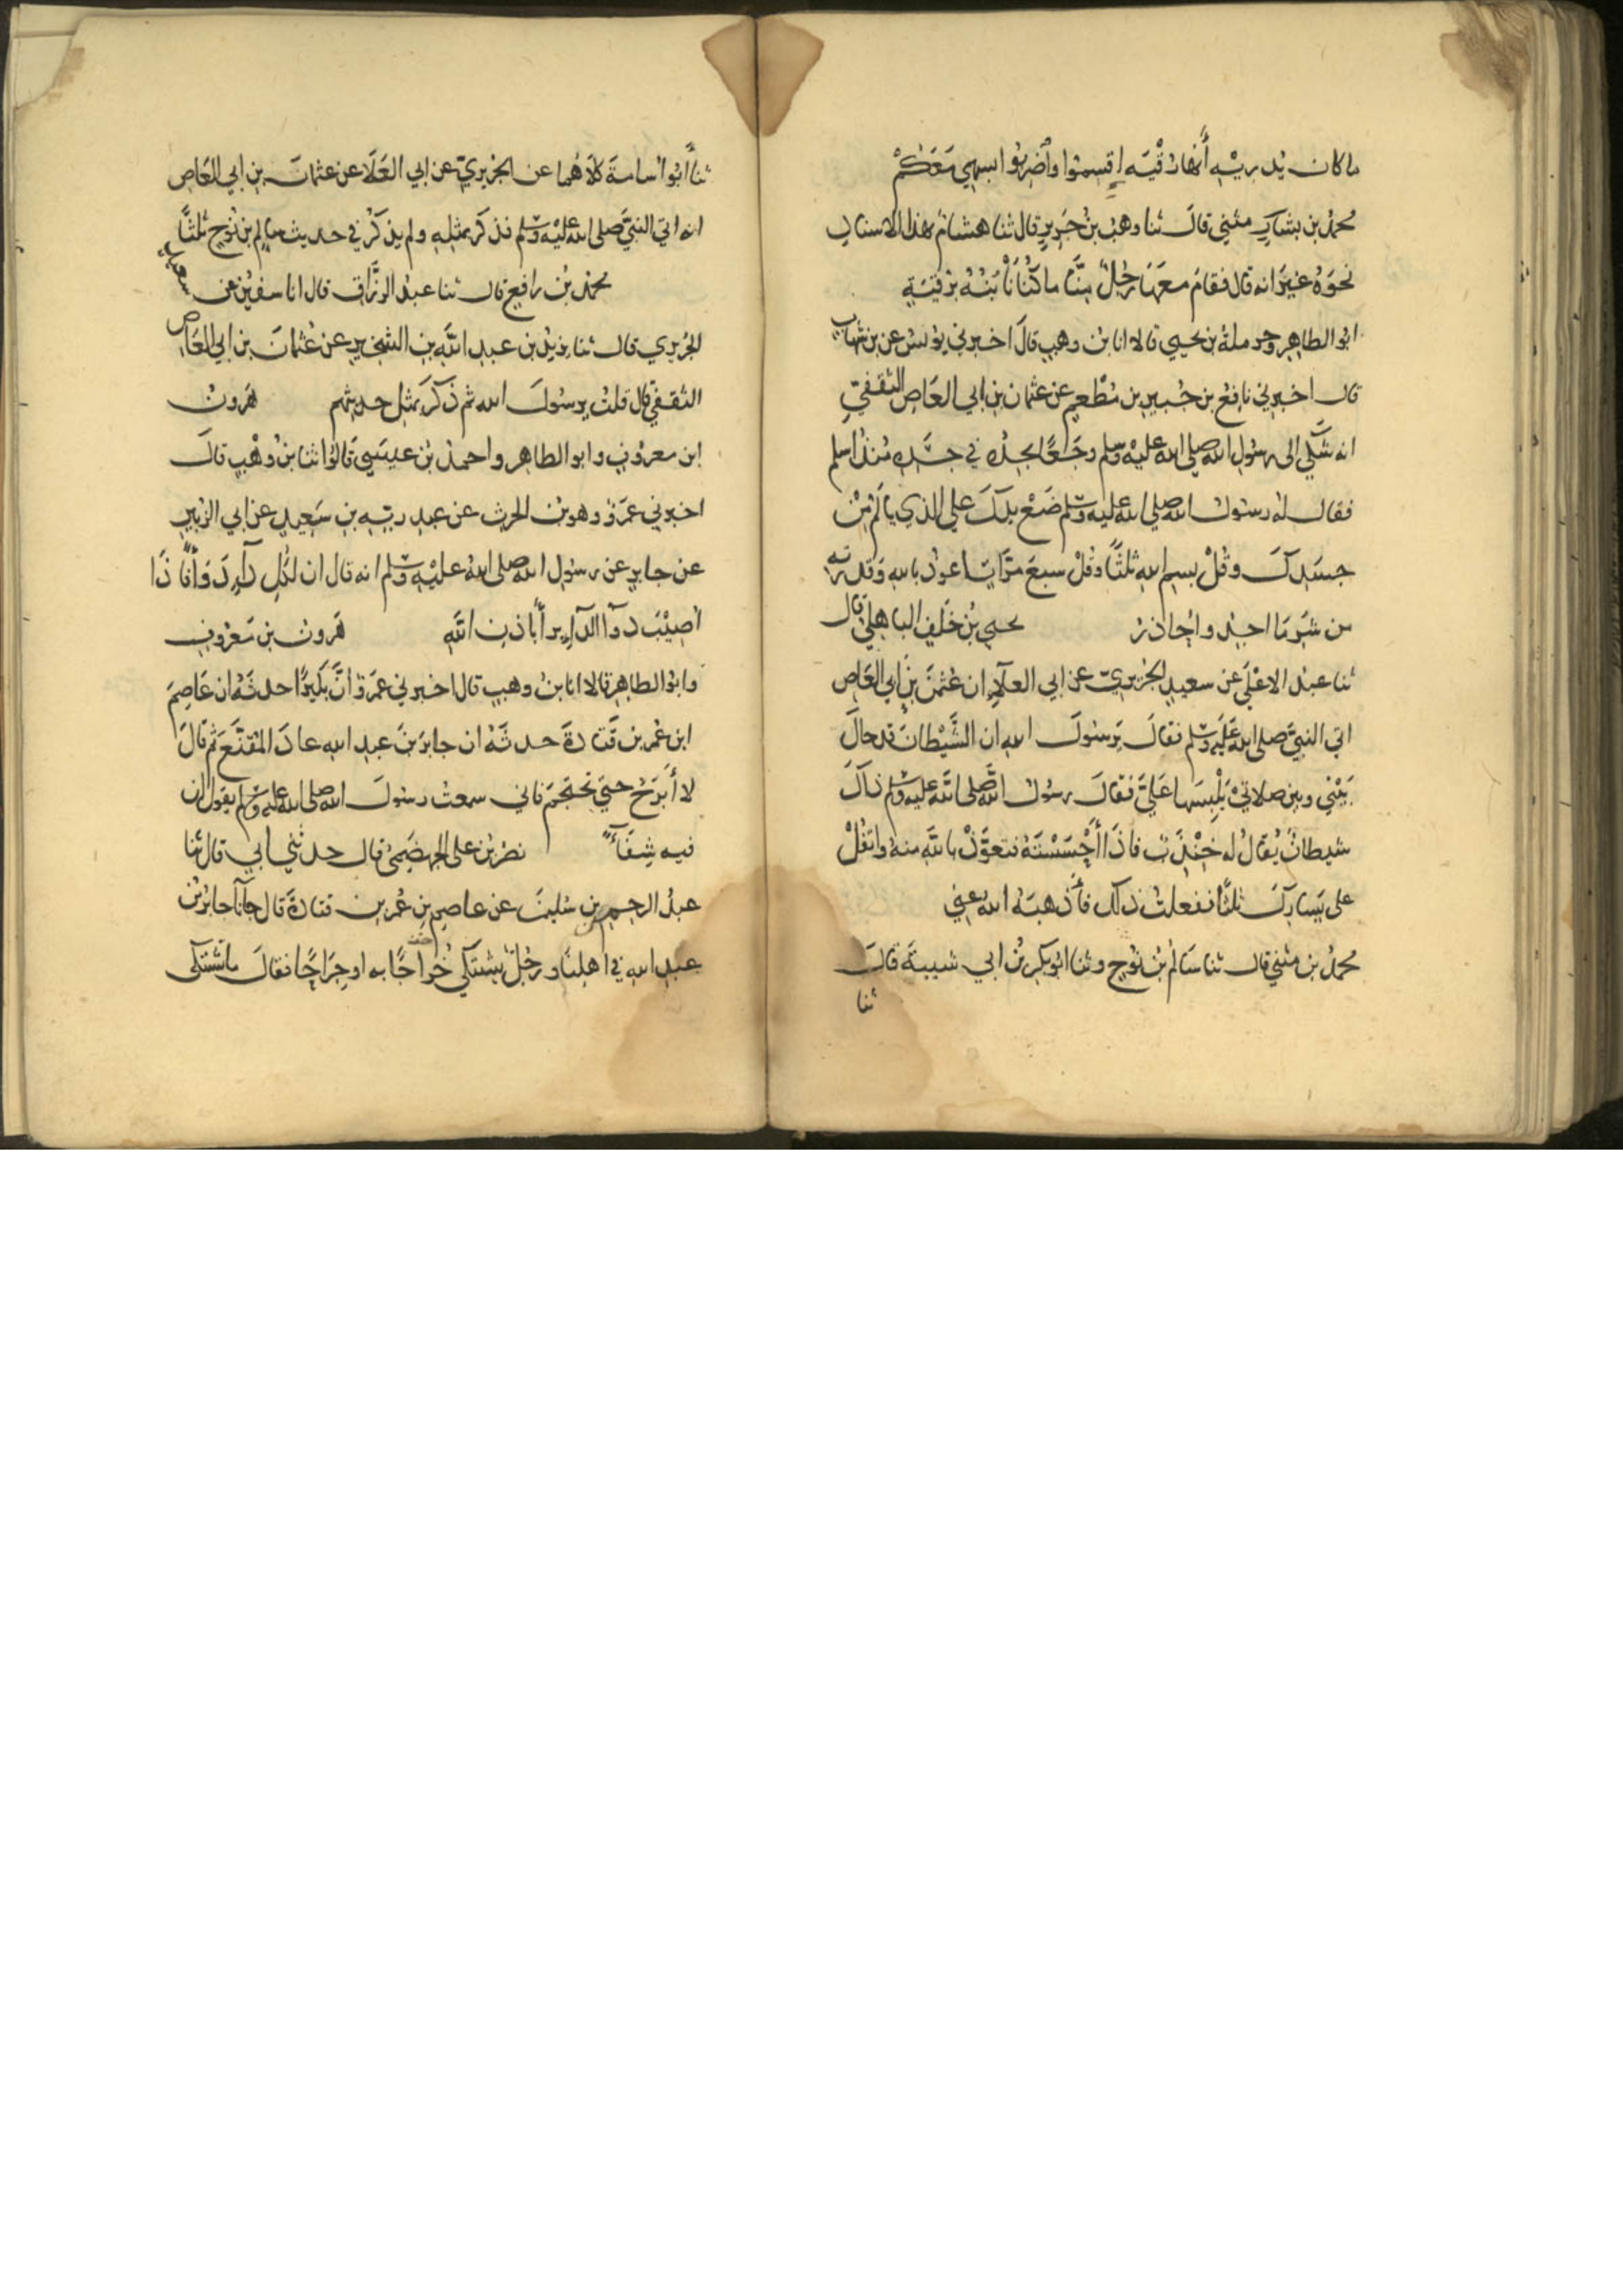 ما كان يدريه أنها رقية اقسموا واضربوا بسهمي معكم
محمد بن بشار مثني قال ثنا وهب بن جرير قال ثنا هشام بهذا الاسناد
نحوه غير انه قال فقام معها رجل منا ما كنا نأبنه برقية
ابو الطاهر وحرملة بن يحيي قالا انا بن وهب قال اخبرني يونس عن بن شهاب
قال اخبرني نافع بن جبير بن مطعم عن عثمان بن ابي العاص الثقفي
انه شكي الى رسول الله صلي الله عليه وسلم وجعا يجده في جسده منذ اسلم
فقال له رسول الله صلي الله عليه وسلم ضع يدك علي الذي يالم من
جسدك وقل بسم الله ثلثا وقل سبع مرات اعوذ بالله وقدرته
من شر ما اجد واحاذر يحيي بن خلف الباهلي قال
ثنا عبد الاعلي عن سعيد الجريري عن ابي العلاء ان عثمن بن ابي العاص
اتي النبي صلي الله عليه وسلم فقال يرسول الله ان الشيطان قد حال
بيني وبين صلاتي يلبسها علي فقال رسول الله صلى الله عليه وسلم ذاك
شيطان يقال له خنزب فاذا أحسسته فتعوذ بالله منه واتفل
على يسارك ثلثا ففعلت ذلك فأذهبه الله عني
محمد بن مثني قال ثنا سالم بن نوح وثنا ابو بكر بن ابي شيبة قال
ثنا
ثنا ابو اسامة كلاهما عن الجريري عن ابي العلا عن عثمان بن ابي العاص
انه اتي النبي صلى الله عليه وسلم فذكر بمثله ولم يذكر في حديث سالم بن نوح ثلثا
محمد بن رافع قال ثنا عبد الرزاق قال انا سفين عن سعيد
الجريري قال ثنا يزيد بن عبد الله بن الشخير عن عثمان بن ابي العاص
الثقفي قال قلت يرسول الله ثم ذكر بمثل حديثهم هرون
ابن معروف وابو الطاهر واحمد بن عيسي قالوا ثنا بن وهب قال
اخبرني عمرو وهو بن الحرث عن عبد ربه بن سعيد عن ابي الزبير
عن جابر عن رسول الله صلى الله عليه وسلم انه قال ان لكل داء دوأ فاذا
اصيب دوآ الداء برأ باذن الله هرون بن معروف
وابو الطاهر قالا انا بن وهب قال اخبرني عمرو أن بكيرا حدثه ان عاصم
ابن عمر بن قتادة حدثه ان جابر بن عبد الله عاد المقنع ثم قال
لا أبرح حتي تحتجم فاني سمعت رسول الله صلى الله عليه وسلم يقول ان
فيه شفاء نصر بن على الجهضمي قال حدثني ابي قال ثنا
عبد الرحمن بن سليمن عن عاصم بن عمر بن قتادة قال جآنا جابر بن
عبد الله في اهلنا ورجل يشتكي خراجا به او جراحا فقال ما تشتكى